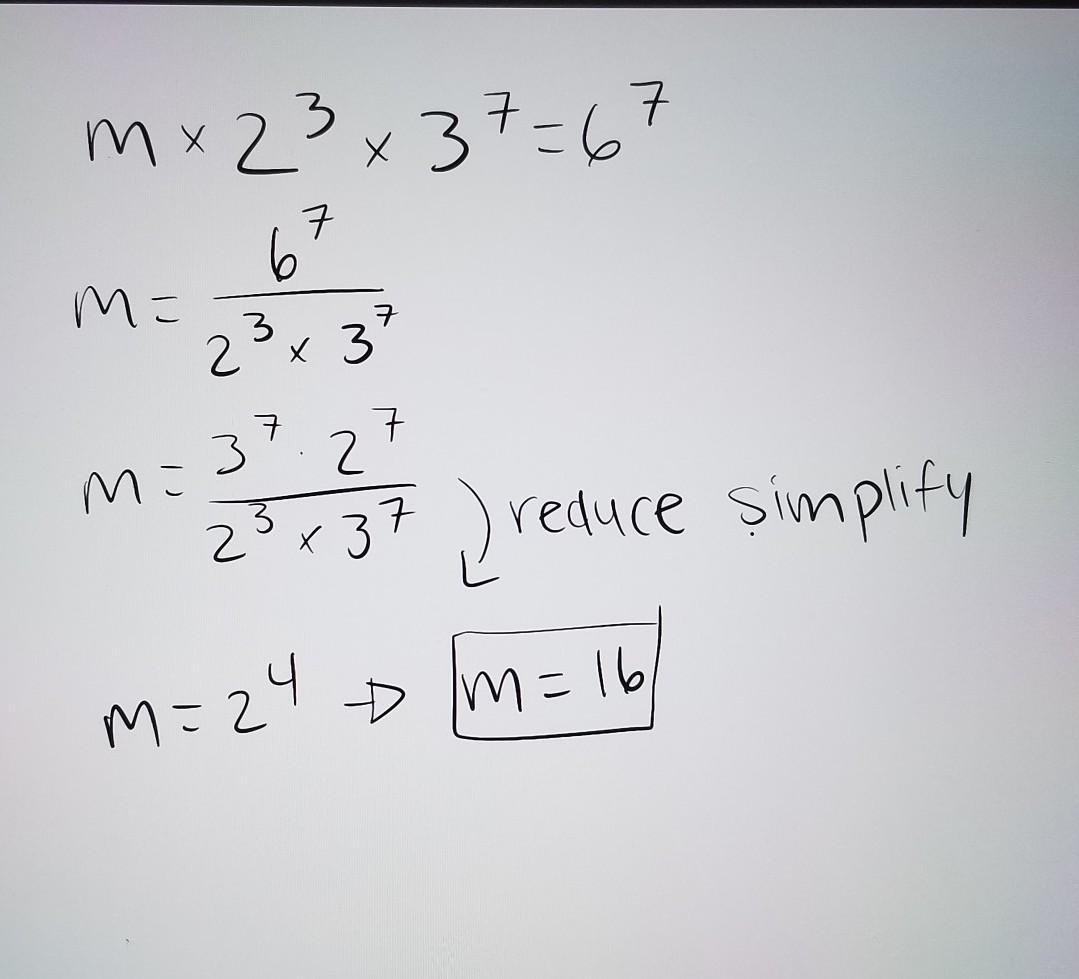 m × 2³ × 3⁷ = 6⁷
m = 6⁷ / 2³ × 3⁷
m = 3⁷ · 2⁷ / 2³ × 3⁷
reduce simplify
m = 2⁴ → m = 16